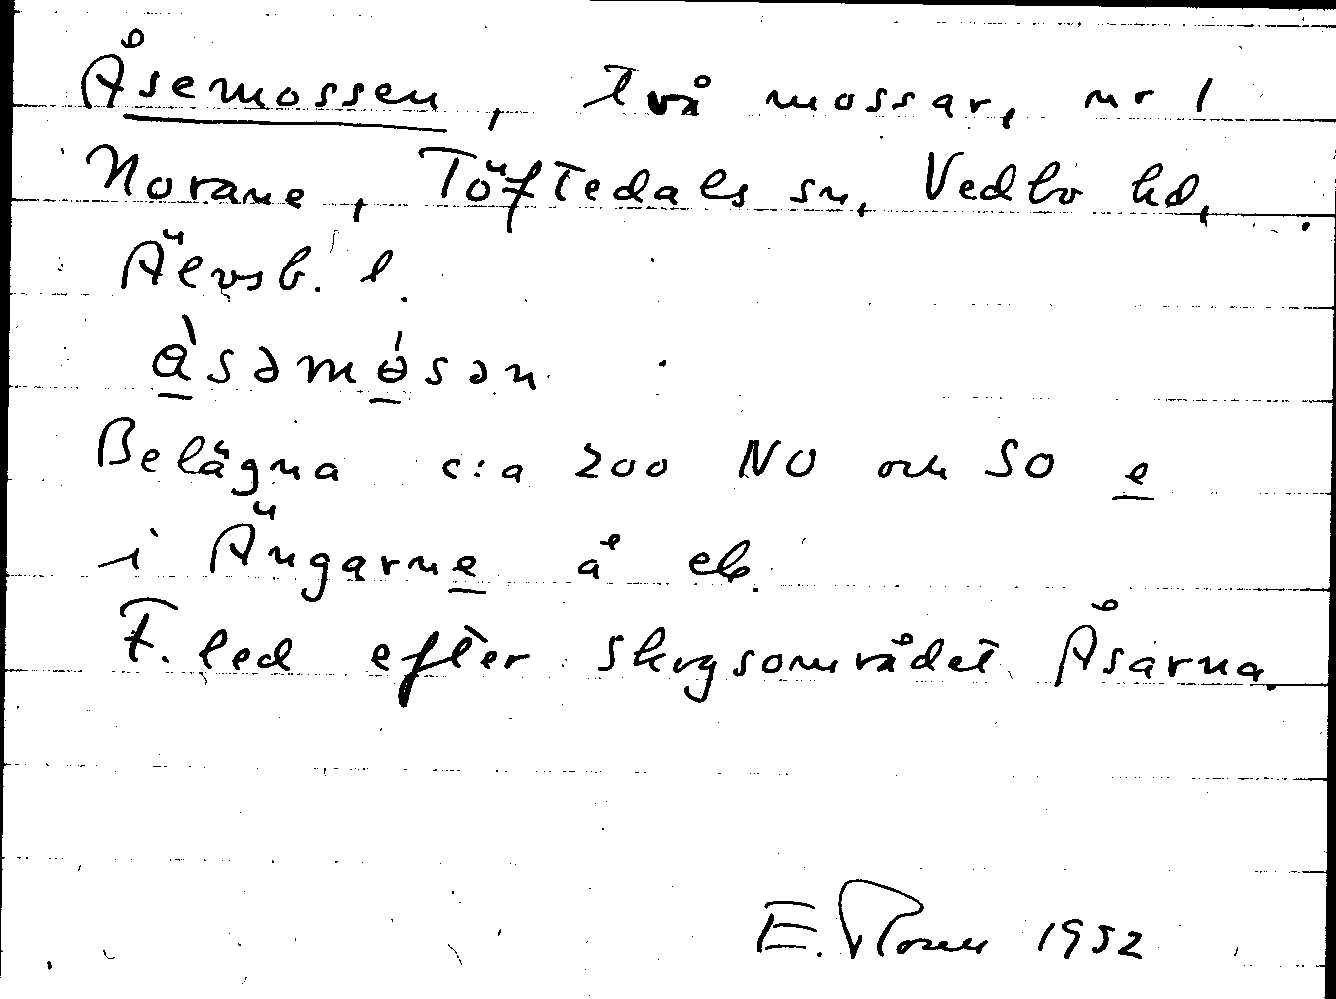 Åsemossen, två mossar, nr 1
Norane, Töftedals sn, Vedbo hd,
Älvsb. l.
å̀səmɵ́sən
Belägna c:a 200 NO och SO e
i Ängarne å eb.
F. led efter skogsområdet Åsarna.
E. Rosen 1952